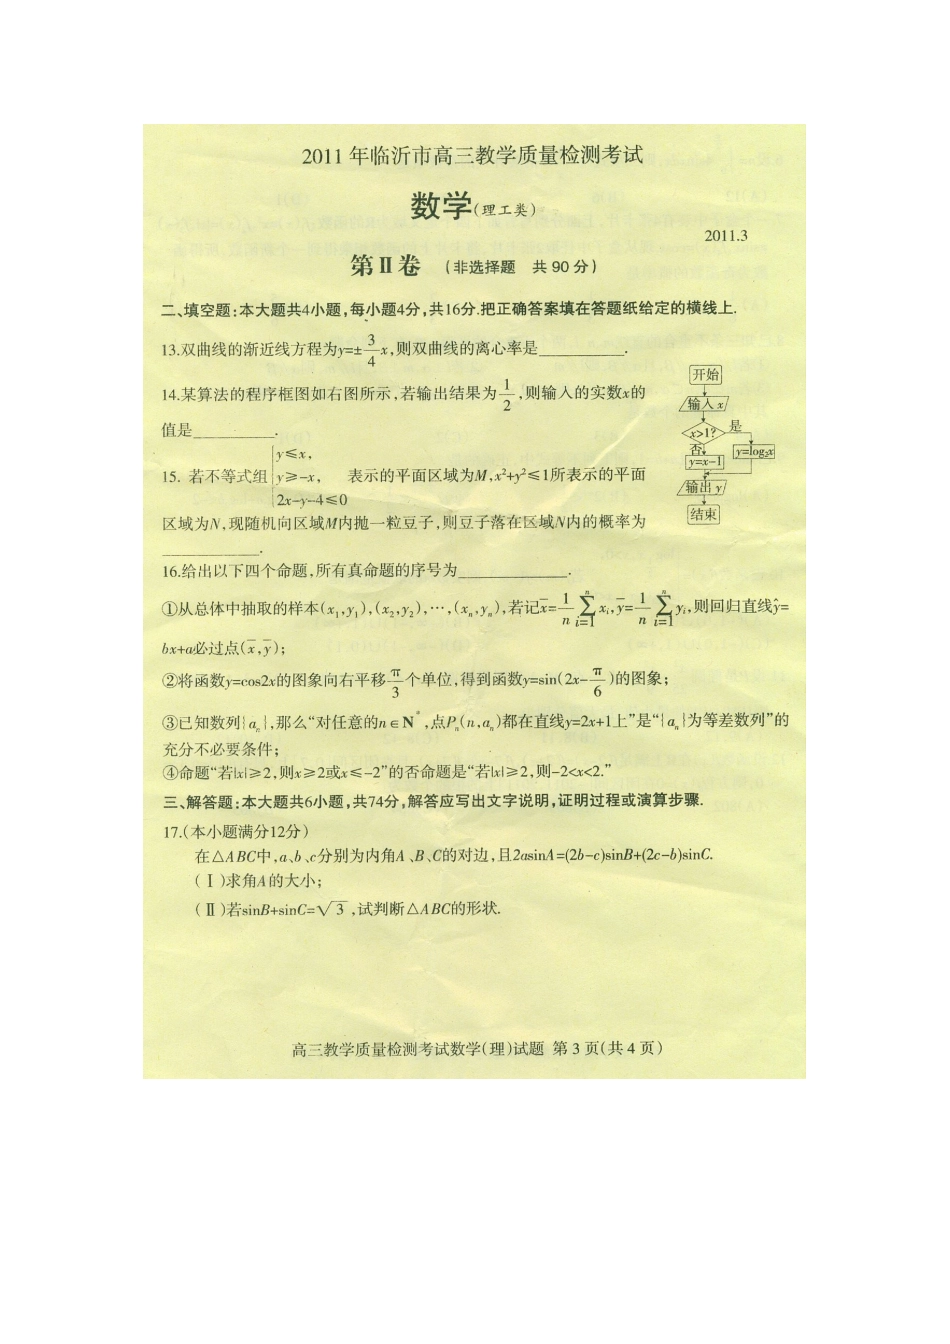 2011年临沂市高三教学质量检测考试
数学(理工类)
2011.3
第Ⅱ卷 (非选择题 共90分)
二、填空题:本大题共4小题,每小题4分,共16分.把正确答案填在答题纸给定的横线上.
13.双曲线的渐近线方程为y=±3/4x,则双曲线的离心率是________.
14.某算法的程序框图如右图所示,若输出结果为1/2,则输入的实数x的
值是________.
开始
输入x
x>1?
是
否
y=x-1
y=log₂x
输出y
结束
y≤x,
15. 若不等式组 y≥-x, 表示的平面区域为M,x²+y²≤1所表示的平面
2x-y-4≤0
区域为N,现随机向区域M内抛一粒豆子,则豆子落在区域N内的概率为
________.
16.给出以下四个命题,所有真命题的序号为________.
①从总体中抽取的样本(x₁,y₁),(x₂,y₂),⋯,(xₙ,yₙ),若记x̄=1/n∑ⁿᵢ₌₁xᵢ,ȳ=1/n∑ⁿᵢ₌₁yᵢ,则回归直线ŷ=
bx+a必过点(x̄,ȳ);
②将函数y=cos2x的图象向右平移π/3个单位,得到函数y=sin(2x-π/6)的图象;
③已知数列{aₙ},那么“对任意的n∈N*,点Pₙ(n,aₙ)都在直线y=2x+1上”是“{aₙ}为等差数列”的
充分不必要条件;
④命题“若|x|≥2,则x≥2或x≤-2”的否命题是“若|x|≥2,则-2<x<2.”
三、解答题:本大题共6小题,共74分,解答应写出文字说明,证明过程或演算步骤.
17.(本小题满分12分)
在△ABC中,a、b、c分别为内角A、B、C的对边,且2asinA=(2b-c)sinB+(2c-b)sinC.
(Ⅰ)求角A的大小;
(Ⅱ)若sinB+sinC=√3,试判断△ABC的形状.
高三教学质量检测考试数学(理)试题 第3页(共4页)